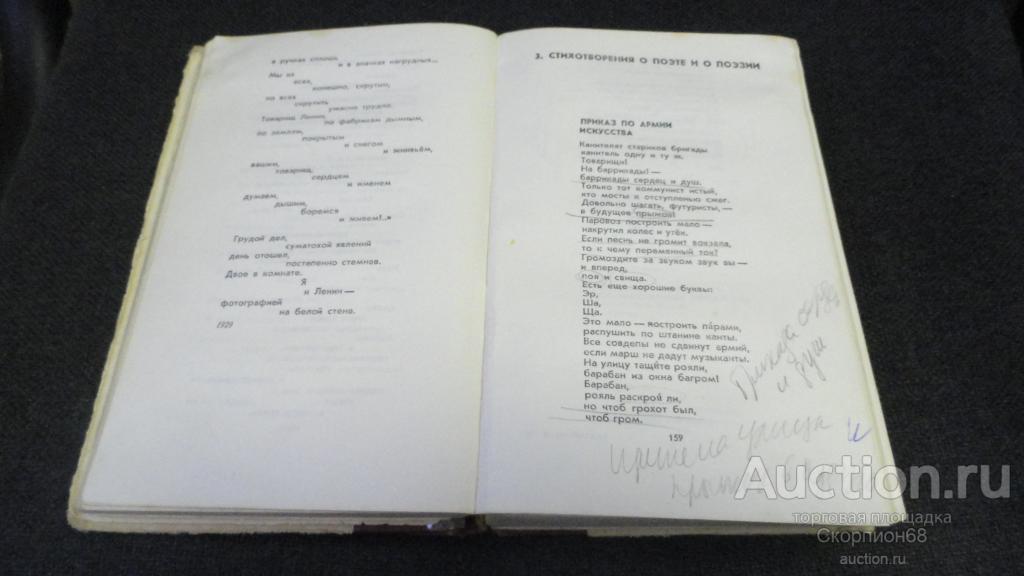 в ручках сплошь
и в значках нагрудных...
Мы их
всех,
конешно, скрутим,
но всех
скрутить
ужасно трудно.
Товарищ Ленин,
по фабрикам дымным,
по землям,
покрытым
и снегом
и жнивьём,
вашим,
товарищ,
сердцем
и именем
думаем,
дышим,
боремся
и живем!..»
Грудой дел,
суматохой явлений
день отошел,
постепенно стемнев.
Двое в комнате.
Я
и Ленин —
фотографией
на белой стене.
1929
3. СТИХОТВОРЕНИЯ О ПОЭТЕ И О ПОЭЗИИ
ПРИКАЗ ПО АРМИИ
ИСКУССТВА
Канителят стариков бригады
канитель одну и ту ж.
Товарищи!
На баррикады! —
баррикады сердец и душ.
Только тот коммунист истый,
кто мосты к отступленью сжег.
Довольно шагать, футуристы, —
в будущее прыжок!
Паровоз построить мало —
накрутил колес и утёк.
Если песнь не громит вокзала,
то к чему переменный ток?
Громоздите за звуком звук вы —
и вперед,
поя и свища.
Есть еще хорошие буквы:
Эр,
Ша,
Ща.
Это мало — построить па́рами,
распушить по штанине канты.
Все совдепы не сдвинут армий,
если марш не дадут музыканты.
На улицу тащите рояли,
барабан из окна багром!
Барабан,
рояль раскрой ли,
но чтоб грохот был,
чтоб гром.
159
и душ
и
Auction.ru
торговая площадка
Скорпион68
auction.ru